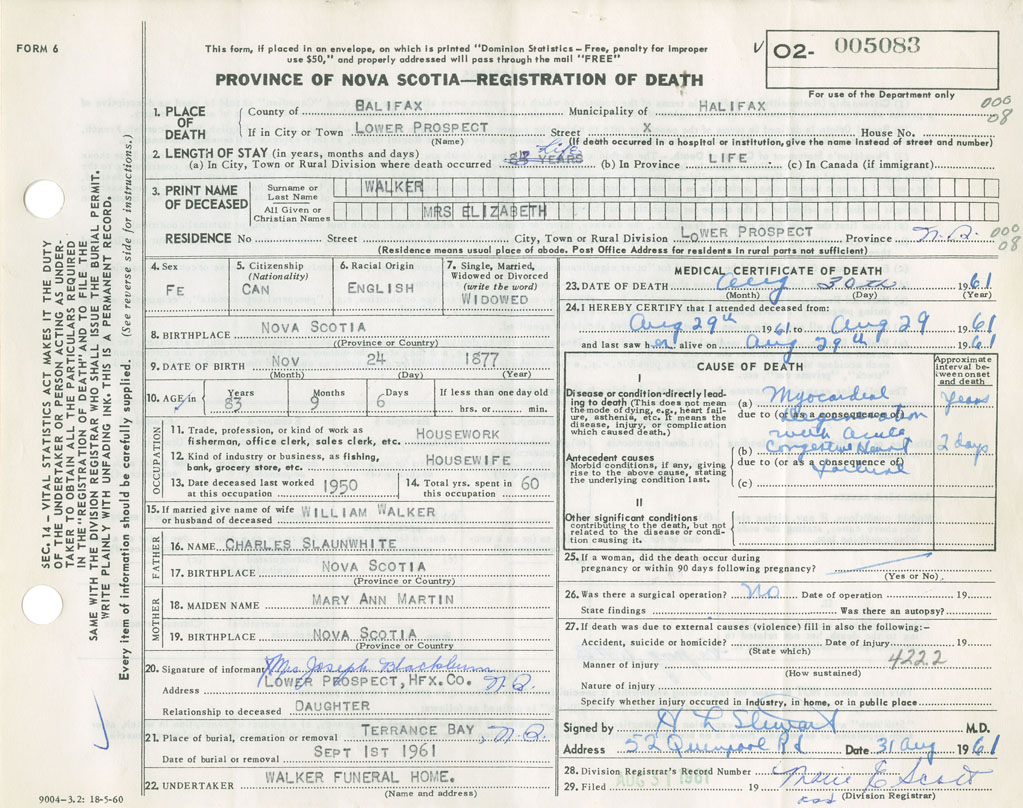 FORM 6
This form, if placed in an envelope, on which is printed "Dominion Statistics – Free, penalty for improper
use $50," and properly addressed will pass through the mail "FREE"
02- 005083
PROVINCE OF NOVA SCOTIA—REGISTRATION OF DEATH
For use of the Department only
000
08
1. PLACE OF DEATH
County of HALIFAX Municipality of HALIFAX
If in City or Town LOWER PROSPECT Street X House No.
(Name) (If death occurred in a hospital or institution, give name instead of street and number)
2. LENGTH OF STAY (in years, months and days)
(a) In City, Town or Rural Division where death occurred Life YEARS (b) In Province LIFE (c) In Canada (if immigrant)
3. PRINT NAME OF DECEASED
Surname or Last Name WALKER
All Given or Christian Names MRS ELIZABETH
RESIDENCE No Street City, Town or Rural Division LOWER PROSPECT Province N.S. 000
08
(Residence means usual place of abode. Post Office Address for residents in rural parts not sufficient)
4. Sex FE
5. Citizenship (Nationality) CAN
6. Racial Origin ENGLISH
7. Single, Married, Widowed or Divorced (write the word) WIDOWED
8. BIRTHPLACE NOVA SCOTIA
(Province or Country)
9. DATE OF BIRTH NOV 24 1877
(Month) (Day) (Year)
10. AGE in Years 83 Months 9 Days 6 If less than one day old hrs. or min.
OCCUPATION
11. Trade, profession, or kind of work as fisherman, office clerk, sales clerk, etc. HOUSEWORK
12. Kind of industry or business, as fishing, bank, grocery store, etc. HOUSEWIFE
13. Date deceased last worked at this occupation 1950
14. Total yrs. spent in this occupation 60
15. If married give name of wife or husband of deceased WILLIAM WALKER
FATHER
16. NAME CHARLES SLAUNWHITE
17. BIRTHPLACE NOVA SCOTIA
(Province or Country)
MOTHER
18. MAIDEN NAME MARY ANN MARTIN
19. BIRTHPLACE NOVA SCOTIA
(Province or Country
20. Signature of informant Mrs Joseph Blackburn
Address LOWER PROSPECT, HFX.CO. N.S.
Relationship to deceased DAUGHTER
21. Place of burial, cremation or removal TERRANCE BAY, N.S.
Date of burial or removal SEPT 1ST 1961
22. UNDERTAKER WALKER FUNERAL HOME.
(Name and address)
MEDICAL CERTIFICATE OF DEATH
23. DATE OF DEATH Aug 30th 1961
(Month) (Day) (Year)
24. I HEREBY CERTIFY that I attended deceased from:
Aug 29th 1961 to Aug 29 1961
and last saw her alive on Aug 29th 1961
CAUSE OF DEATH
Approximate interval between onset and death
I
Disease or condition directly leading to death (This does not mean the mode of dying, e.g., heart failure, asthenia, etc. It means the disease, injury, or complication which caused death.)
(a) Myocardial years
due to (or as a consequence of) Degeneration
with acute
(b) Congestive Heart 2 days
Antecedent causes
Morbid conditions, if any, giving rise to the above cause, stating the underlying condition last.
due to (or as a consequence of) Failure
(c)
II
Other significant conditions
contributing to the death, but not related to the disease or condition causing it.
25. If a woman, did the death occur during
pregnancy or within 90 days following pregnancy?
(Yes or No)
26. Was there a surgical operation? No Date of operation 19
State findings Was there an autopsy?
27. If death was due to external causes (violence) fill in also the following:–
Accident, suicide or homicide? Date of injury 19
(State which)
Manner of injury 4222
(How sustained)
Nature of injury
Specify whether injury occurred in industry, in home, or in public place
Signed by H L Stewart M.D.
Address 52 Quinpool Rd Date 31 Aug 1961
28. Division Registrar's Record Number
AUG 31 1961
29. Filed 19 Marie E Scott
(Division Registrar)
SEC. 14 – VITAL STATISTICS ACT MAKES IT THE DUTY
OF THE UNDERTAKER OR PERSON ACTING AS UNDER-
TAKER TO OBTAIN ALL THE PARTICULARS REQUIRED
IN THE "REGISTRATION OF DEATH" AND TO FILE THE
SAME WITH THE DIVISION REGISTRAR WHO SHALL ISSUE THE BURIAL PERMIT.
WRITE PLAINLY WITH UNFADING INK. THIS IS A PERMANENT RECORD.
Every item of information should be carefully supplied. (See reverse side for instructions.)
9004–3.2: 18-5-60